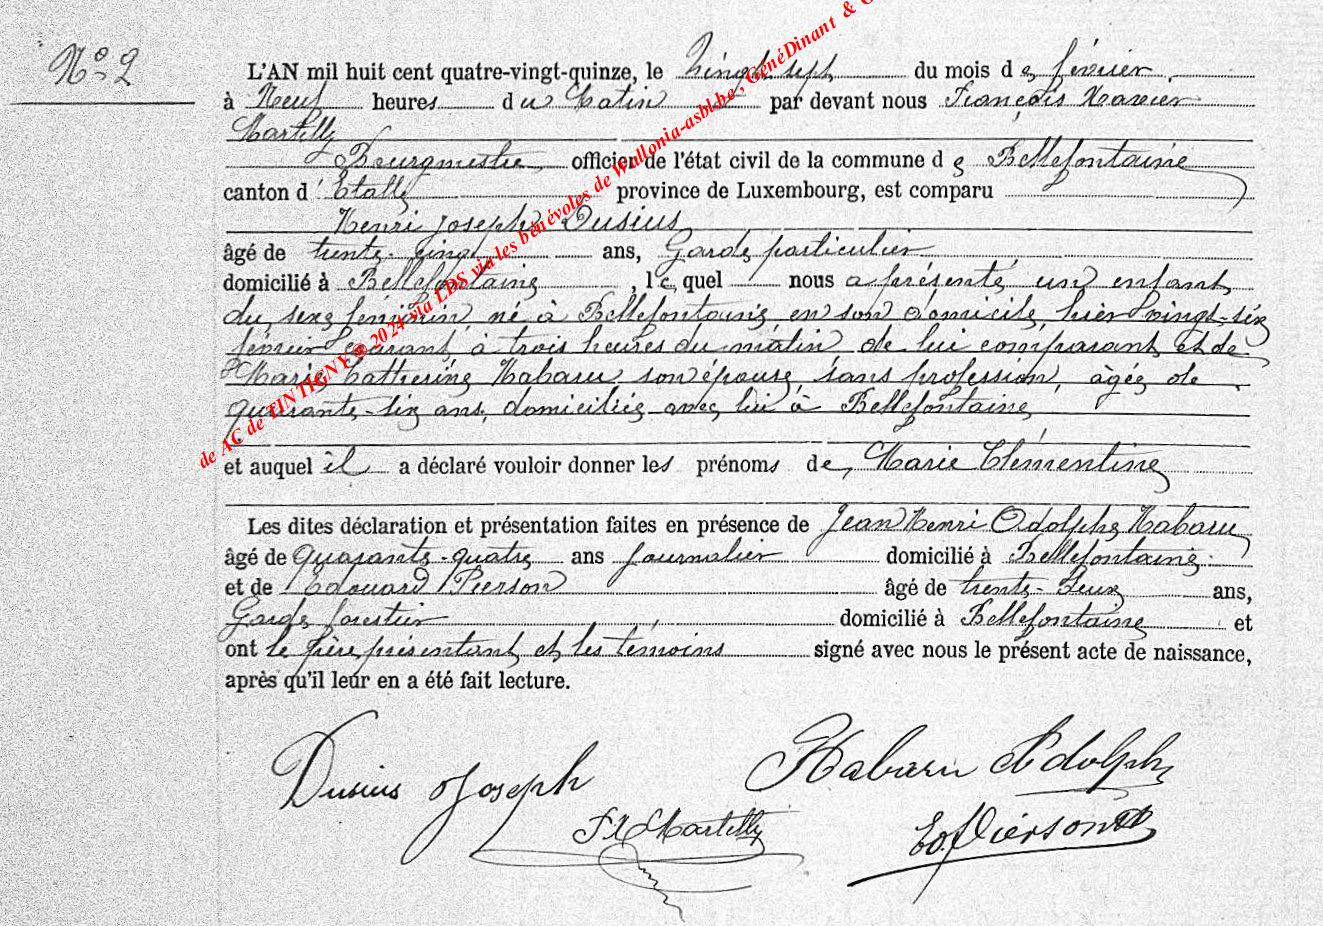 N° 2
L'AN mil huit cent quatre-vingt-quinze, le vingt sept du mois de février
à Neuf heures du Matin par devant nous François Xavier
Martilly
Bourgmestre officier de l'état civil de la commune de Bellefontaine
canton d'Etalle province de Luxembourg, est comparu
Henri Joseph Dusius
âgé de trente-cinq ans, Garde particulier
domicilié à Bellefontaine, lequel nous a présenté un enfant
du sexe féminin, né à Bellefontaine, en son domicile, hier vingt-six
février courant, à trois heures du matin de lui comparant et de
Marie Catherine Habaru, son épouse, sans profession, âgée de
quarante-six ans, domiciliée avec lui à Bellefontaine
et auquel il a déclaré vouloir donner les prénoms de Marie Clémentine
Les dites déclaration et présentation faites en présence de Jean Henri Adolphe Habaru
âgé de quarante-quatre ans journalier domicilié à Bellefontaine
et de Edouard Pierson âgé de trente-deux ans,
Garde forestier domicilié à Bellefontaine et
ont le père présentant et les témoins signé avec nous le présent acte de naissance,
après qu'il leur en a été fait lecture.
Dusius Joseph Habaru Adolphe
F X Martilly Ed. Pierson
de AC de TINTIGNY @ 2024 via LDS via les bénévoles de Wallonia-asbl.be , GénéDinant &